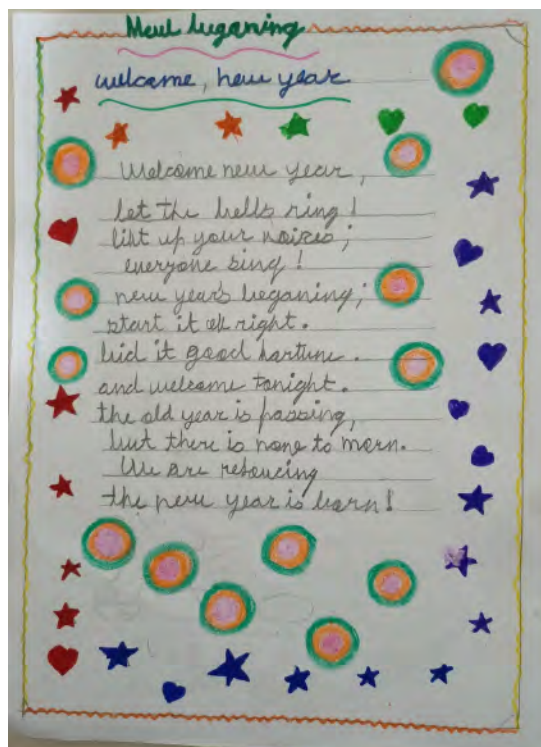 New beganing
welcome, new year
Welcome new year,
let the bells ring!
lift up your voices;
everyone sing!
new year's beganing;
start it off right.
bid it good fortune.
and welcome tonight.
the old year is passing,
but there is none to morn.
We are
the new year is born!